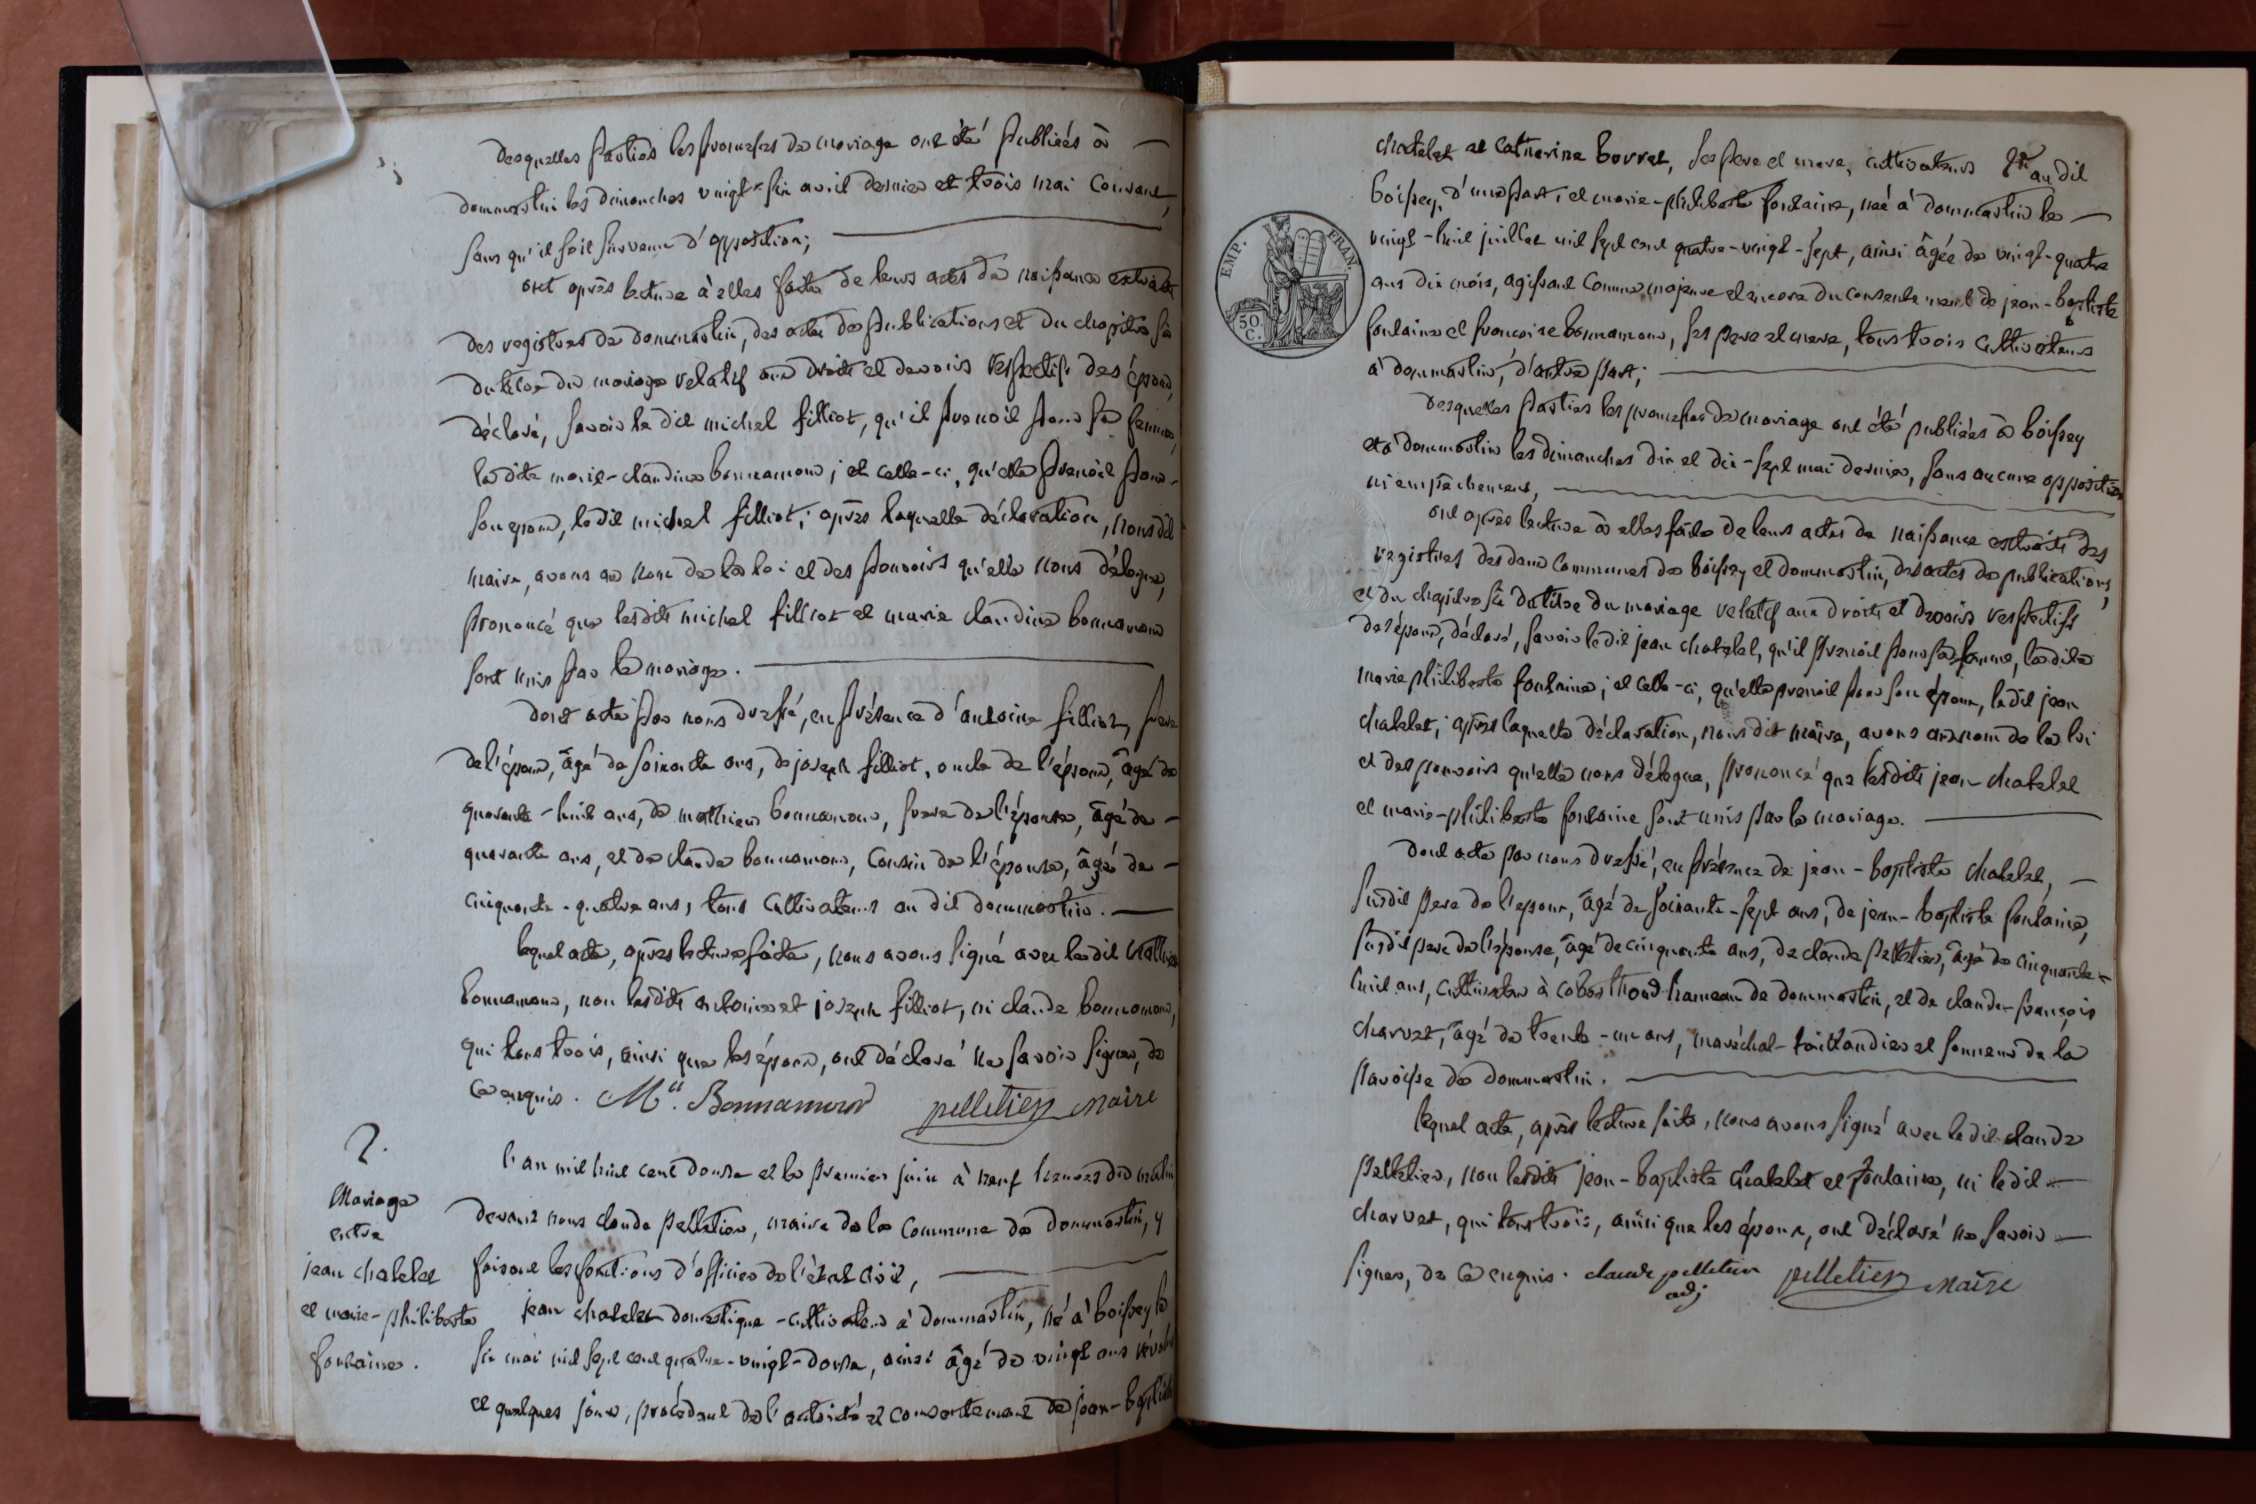 desquelles parties les promesses de mariage ont été publiées à
dommartin les dimanches vingt-six avril dernier et trois mai courant,
sans qu'il soit survenu d'opposition;
ont après lecture à elles faite de leurs actes de naissance extraits
des registres de dommartin, des actes de publications et du chapitre six
du titre du mariage relatif aux droits et devoirs respectifs des époux,
déclaré, savoir le dit michel filliot, qu'il prenoit pour sa femme,
la dite marie-claudine bonnamour; et celle-ci, qu'elle prenoit pour
son epoux, ledit michel filliot; après laquelle déclaration, nous dit
maire, avons au nom de la loi et des pouvoirs qu'elle nous délegue,
prononcé que lesdits michel filliot et marie claudine bonnamour
sont unis par le mariage.
dont acte par nous dressé, en présence d'antoine filliot, pere
de l'époux, âgé de soixante ans, de joseph filliot, oncle de l'époux, âgé de
quarante-huit ans, de mathieu bonnamour, frere de l'épouse, âgé de
quarante ans, et de claude bonnamour, cousin de l'épouse, âgé de
cinquante-quatre ans, tous cultivateurs au dit dommartin.
lequel acte, après lecture faite, nous avons signé avec ledit Mathieu
bonnamour, non lesdits antoine et joseph filliot, ni claude bonnamour,
qui tous trois, ainsi que les époux, ont déclaré ne savoir signer, de
ce enquis. M.u Bonnamour pelletier maire
2.
Mariage
entre
jean chatelet
et marie-philiberte
fontaine.
l'an mil huit cent douze et le premier juin à neuf heures du matin
devant nous claude pelletier, maire de la commune de dommartin, y
faisant les fonctions d'officier de l'état civil,
jean chatelet domestique-cultivateur à dommartin, né à boissey le
six mai mil sept cent quatre-vingt-douze, ainsi âgé de vingt ans révolus
et quelques jours, procédant de l'autorité et consentement de jean-baptiste
EMP. FRAN.
50 C.
chatelet et catherine borret, ses pere et mere, cultivateurs au dit
boissey, d'une part; et marie-philiberte fontaine, née à dommartin le
vingt-huit juillet mil sept cent quatre-vingt-sept, ainsi âgée de vingt-quatre
ans dix mois, agissant comme majeure et encore du consentement de jean-baptiste
fontaine et francoise bonnamour, ses pere et mere, tous trois cultivateurs
à dommartin, d'autre part;
desquelles parties les promesses de mariage ont été publiées à boissey
et à dommartin les dimanches dix et dix-sept mai dernier, sans aucune opposition
ni empêchement,
ont après lecture à elles faite de leurs actes de naissance extraits des
registres des deux communes de boissey et dommartin, des actes de publications,
et du chapitre six du titre du mariage relatif aux droits et devoirs respectifs
des époux, déclaré, savoir ledit jean chatelet, qu'il prenoit pour sa femme, ladite
marie philiberte fontaine; et celle-ci, qu'elle prenoit pour son époux, ledit jean
chatelet; après laquelle déclaration, nous dit maire, avons au nom de la loi
et des pouvoirs qu'elle nous délegue, prononcé que lesdits jean chatelet
et marie-philiberte fontaine sont unis par le mariage.
dont acte par nous dressé, en présence de jean-baptiste chatelet,
susdit pere de l'epoux, âgé de soixante-sept ans, de jean-baptiste fontaine,
susdit pere de l'épouse, âgé de cinquante ans, de claude pelletier, âgé de cinquante-
huit ans, cultivateur à hameau de dommartin, et de claude-françois
charvet, âgé de trente-un ans, maréchal-taillandier et sonneur de la
paroisse de dommartin.
lequel acte, après lecture faite, nous avons signé avec ledit claude
pelletier, non lesdits jean-baptiste chatelet et fontaine, ni ledit
charvet, qui tous trois, ainsi que les époux, ont déclaré ne savoir
signer, de ce enquis. claude pelletier pelletier maire
adj